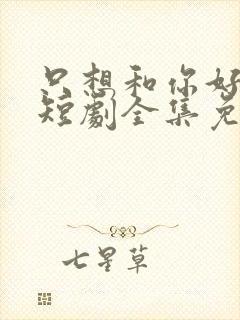 只想和你好
短剧全集免
七星草